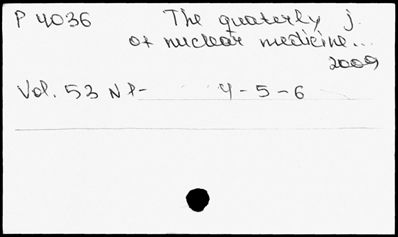 P 4036 The quaterly j.
of nuclear medicine...
2009
Vol. 53 Nº- 4-5-6